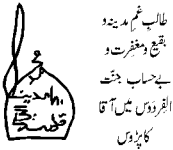 طالبِ غمِ مدینہ و
بقیع و مغفرت و
بے حساب جنّت
الفردوس میں آقا
کا پڑوس